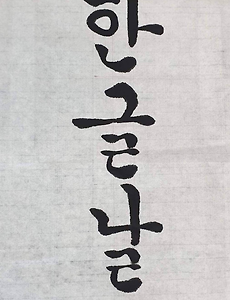 한글날